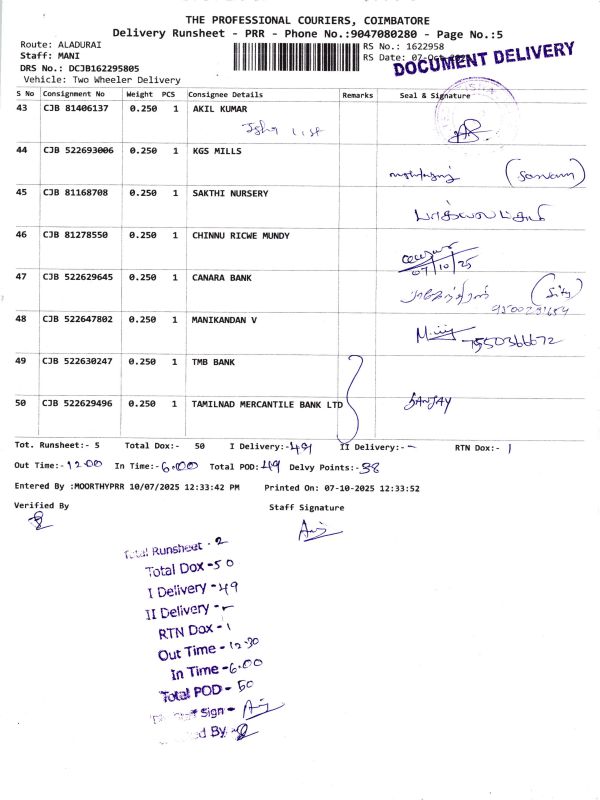 THE PROFESSIONAL COURIERS, COIMBATORE
Delivery Runsheet - PRR - Phone No.:9047080280 - Page No.:5
Route: ALADURAI
Staff: MANI
DRS No.: DCJB162295805
Vehicle: Two Wheeler Delivery
RS No.: 1622958
RS Date: 07-Oct
DOCUMENT DELIVERY
S No Consignment No Weight PCS Consignee Details Remarks Seal & Signature
43 CJB 81406137 0.250 1 AKIL KUMAR
list
44 CJB 522693006 0.250 1 KGS MILLS
45 CJB 81168708 0.250 1 SAKTHI NURSERY
46 CJB 81278550 0.250 1 CHINNU RICWE MUNDY
07/10/25
47 CJB 522629645 0.250 1 CANARA BANK
48 CJB 522647802 0.250 1 MANIKANDAN V
7550366672
49 CJB 522630247 0.250 1 TMB BANK
50 CJB 522629496 0.250 1 TAMILNAD MERCANTILE BANK LTD SANJAY
Tot. Runsheet:- 5 Total Dox:- 50 I Delivery:-49 II Delivery:-- RTN Dox:- 1
Out Time:-12.00 In Time:-6.00 Total POD:49 Delvy Points:-38
Entered By :MOORTHYPRR 10/07/2025 12:33:42 PM Printed On: 07-10-2025 12:33:52
Verified By Staff Signature
Total Runsheet - 2
Total Dox -50
I Delivery -49
II Delivery --
RTN Dox -1
Out Time -12.30
In Time -6.00
Total POD - 50
Sign -
By -